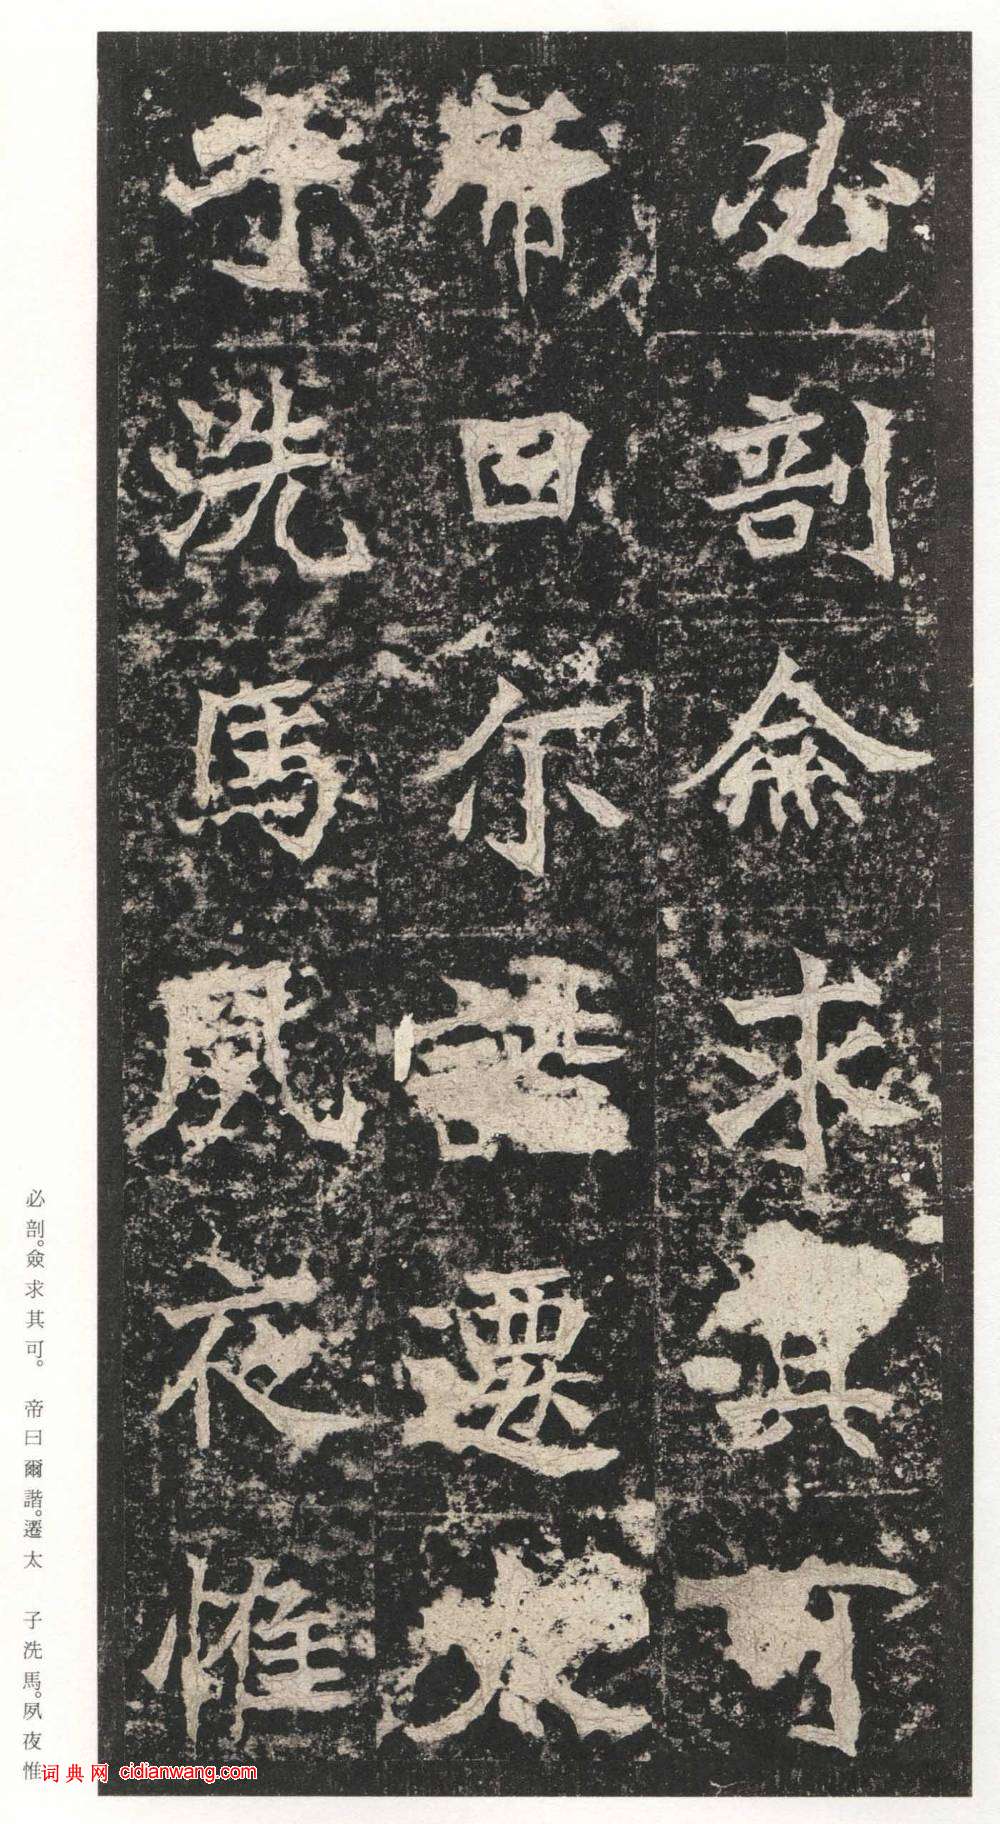 必剖僉求其可
帝曰尔諧遷太
子洗馬夙夜惟
必剖。僉求其可。 帝曰爾諧。遷太 子洗馬。夙夜惟
词典网 cidianwang.com